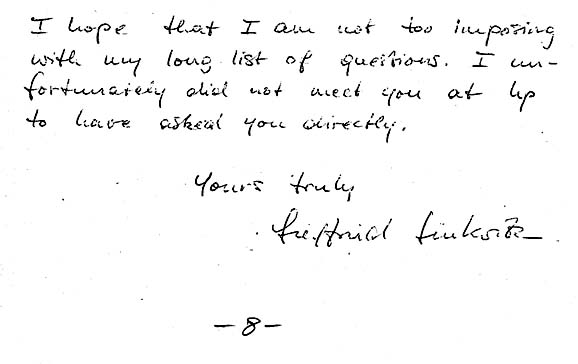 I hope that I am not too imposing
with my long list of questions. I un-
fortunately did not meet you at hp
to have asked you directly.
Yours truly
Siegfried Linkwitz
-8-